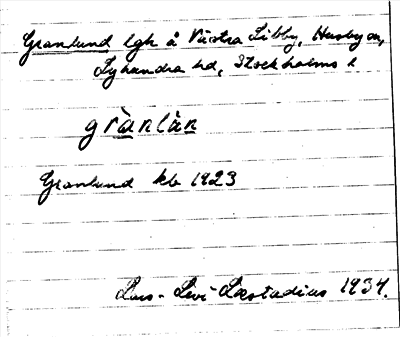 Granlund lgh å Västra Libby, Husby sn,
Lyhundra hd, Stockholms l
grànlàn
Granlund kb 1923
Lars-Levi Læstadius 1934.